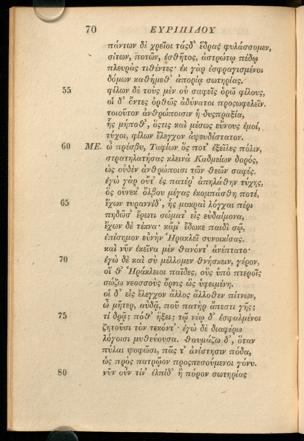 70 ΕΥΡΙΠΙΔΟΥ
πάντων δὲ χρεῖοι τάσδ' ἕδρας φυλάσσομεν,
σίτων, ποτῶν, ἐσθῆτος, ἀστρώτῳ πέδῳ
πλευρὰς τιθέντες· ἐκ γὰρ ἐσφραγισμένοι
δόμων καθήμεθ' ἀπορίᾳ σωτηρίας.
55 φίλων δὲ τοὺς μὲν οὐ σαφεῖς ὁρῶ φίλους,
οἱ δ' ὄντες ὀρθῶς ἀδύνατοι προςωφελεῖν.
τοιοῦτον ἀνθρώποισιν ἡ δυσπραξία,
ἧς μήποθ', ὅςτις καὶ μέσως εὔνους ἐμοί,
τύχοι, φίλων ἔλεγχον ἀψευδέστατον.
60 ΜΕ. ὦ πρέσβυ, Ταφίων ὅς ποτ' ἐξεῖλες πόλιν,
στρατηλατήσας κλεινὰ Καδμείων δορός,
ὡς οὐδὲν ἀνθρώποισι τῶν θεῶν σαφές.
ἐγὼ γὰρ οὔτ' ἐς πατέρ' ἀπηλάθην τύχης,
ὃς οὕνεκ' ὄλβου μέγας ἐκομπάσθη ποτὲ
65 ἔχων τυραννίδ', ἧς μακραὶ λόγχαι πέρι
πηδῶσ' ἔρωτι σώματ' εἰς εὐδαίμονα,
ἔχων δὲ τέκνα· κἄμ' ἔδωκε παιδὶ σῷ,
ἐπίσημον εὐνὴν Ἡρακλεῖ συνοικίσας.
καὶ νῦν ἐκεῖνα μὲν θανόντ' ἀνέπτατο·
70 ἐγὼ δὲ καὶ σὺ μέλλομεν θνήσκειν, γέρον,
οἵ θ' Ἡράκλειοι παῖδες, οὓς ὑπὸ πτεροῖς
σώζω νεοσσοὺς ὄρνις ὣς ὑφειμένη.
οἱ δ' εἰς ἔλεγχον ἄλλος ἄλλοθεν πίτνων,
ὦ μῆτερ, αὐδᾷ, ποῦ πατὴρ ἄπεστι γῆς;
75 τί δρᾷ; πόθ' ἥξει; τῷ νέῳ δ' ἐσφαλμένοι
ζητοῦσι τὸν τεκόντ'· ἐγὼ δὲ διαφέρω
λόγοισι μυθεύουσα. θαυμάζω δ', ὅταν
πύλαι ψοφῶσι, πᾶς τ' ἀνίστησιν πόδα,
ὡς πρὸς πατρῷον προςπεσούμενοι γόνυ.
80 νῦν οὖν τίν' ἐλπίδ' ἢ πόρον σωτηρίας